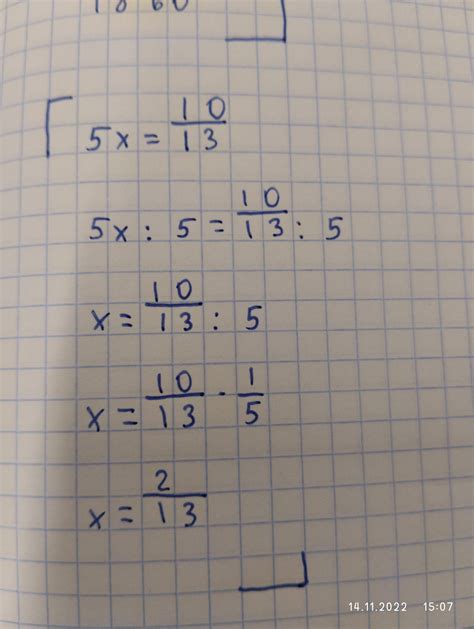 5x = 10/13
5x : 5 = 10/13 : 5
x = 10/13 : 5
x = 10/13 · 1/5
x = 2/13
14.11.2022 15:07